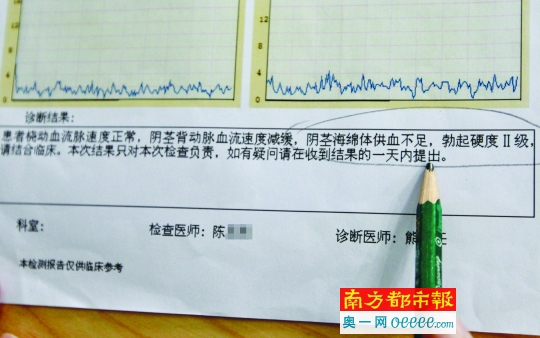 12
8
4
0
12
8
4
0
诊断结果:
患者桡动血流脉速度正常，阴茎背动脉血流速度减缓，阴茎海绵体供血不足，勃起硬度Ⅱ级，
请结合临床。本次结果只对本次检查负责，如有疑问请在收到结果的一天内提出。
科室：
检查医师：陈
诊断医师：熊 任
本检测报告仅供临床参考
南方都市報
奥一网oeeee.com